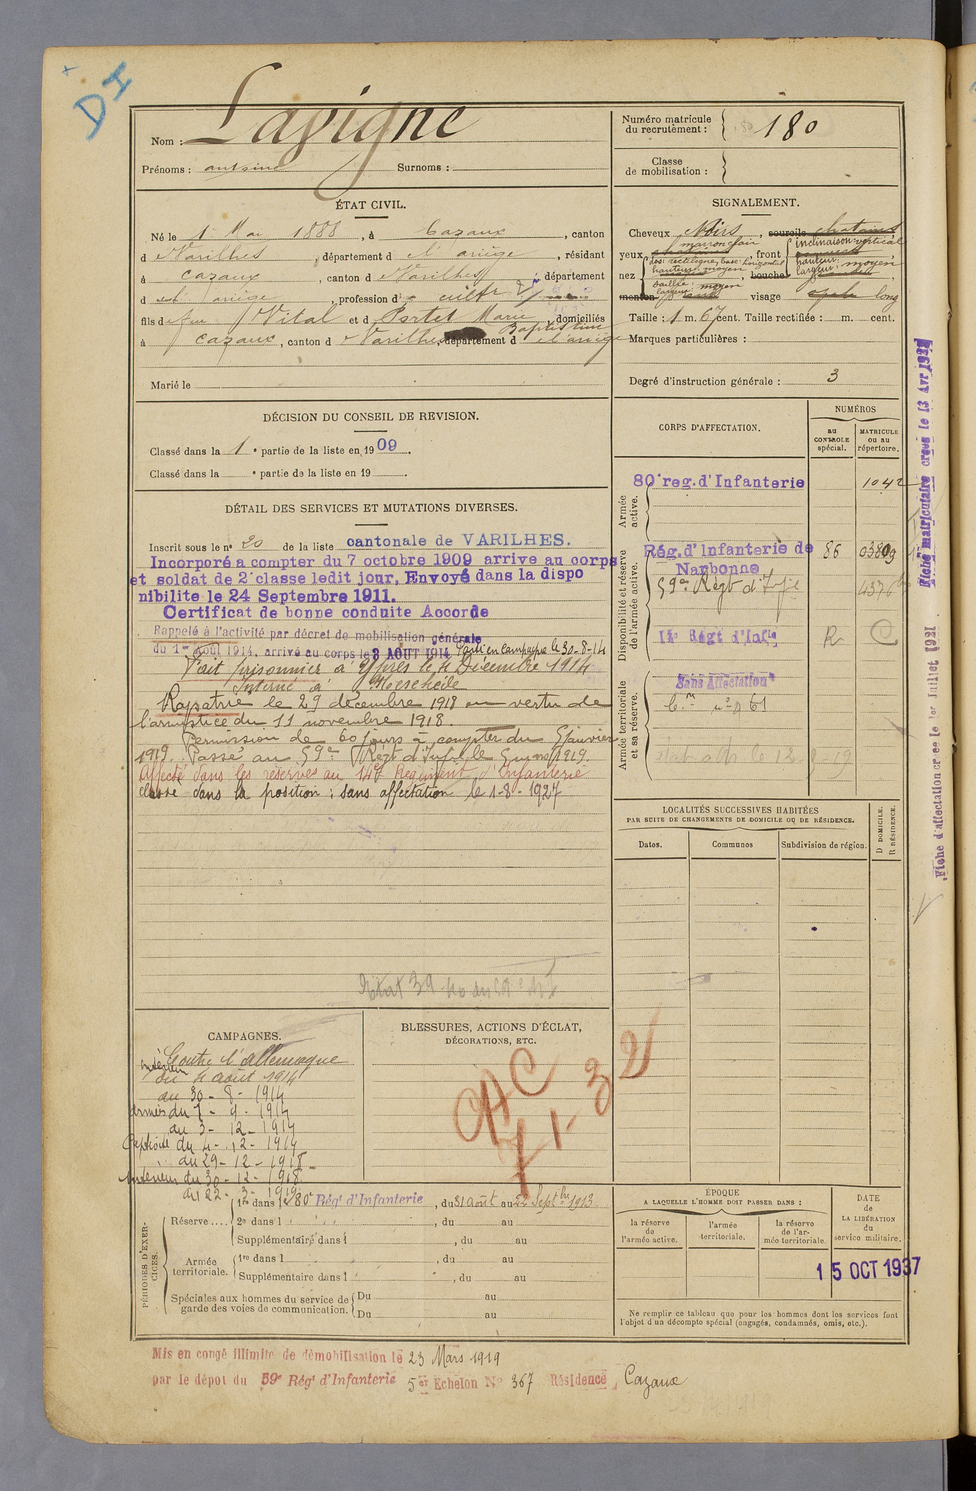 DI
Nom : Lavigne
Prénoms : antoine Surnoms :
Numéro matricule du recrutement : 180
Classe de mobilisation :
ÉTAT CIVIL.
Né le 1 Mai 1888, à Cazaux, canton
d Varilhes, département d l'ariège, résidant
à Cazaux, canton d Varilhes, département
d el ariège, profession d cultr
fils d feu Vital et d Portet Marie Baptistine, domiciliés
à Cazaux, canton d Varilhes, département d el'ariège
Marié le
SIGNALEMENT.
Cheveux Noirs, sourcils chatains
yeux marron clair, front inclinaison vertical
hauteur: moyen
largeur: moyen
nez dos: rectiligne, base: horizontal
hauteur: moyen
saillie: moyen
largeur:
bouche
menton visage long
Taille : 1 m. 67 cent. Taille rectifiée : m. cent.
Marques particulières :
Degré d'instruction générale : 3
DÉCISION DU CONSEIL DE REVISION.
Classé dans la 1e partie de la liste en 1909.
Classé dans la e partie de la liste en 19
DÉTAIL DES SERVICES ET MUTATIONS DIVERSES.
Inscrit sous le n° 20 de la liste cantonale de VARILHES.
Incorporé a compter du 7 octobre 1909 arrive au corps
et soldat de 2e classe ledit jour, Envoyé dans la dispo
nibilite le 24 Septembre 1911.
Certificat de bonne conduite Accorde
Rappelé à l'activité par décret de mobilisation générale
du 1er Août 1914, arrivé au corps le 3 AOUT 1914 Parti en campagne le 30-8-14
Fait prisonnier à Ypres le 4 Décembre 1914
Interné à Meschede
Rapatrié le 29 décembre 1918 en vertu de
l'armistice du 11 novembre 1918.
Permission de 60 jours à compter du 9 janvier
1919. Passé au 59e Régt d'Infie le 9 mars 1919.
Affecté dans les réserves au 14e Régiment d'Infanterie
classé dans la position : sans affectation le 1-8-1927
CORPS D'AFFECTATION.
NUMÉROS
AU CONTROLE spécial.
MATRICULE ou au répertoire.
Armée active.
80e reg. d'Infanterie 1042
Disponibilité et réserve de l'armée active.
Rég. d'Infanterie de Narbonne 86 03809
59e Régt d'Infie 4376
14e Régt d'Infie R C
Armée territoriale et sa réserve
Sans Affectation
LOCALITÉS SUCCESSIVES HABITÉES
PAR SUITE DE CHANGEMENTS DE DOMICILE OU DE RÉSIDENCE.
Dates. Communes Subdivision de région. D DOMICILE. R RÉSIDENCE.
CAMPAGNES.
Contre l'allemagne
Intérieur du 4 août 1914
au 30-8-1914
Armées du 1-9-1914
au 3-12-1914
Captivité du 4-12-1914
au 29-12-1918
Intérieur du 30-12-1918
au 22-3-1919
BLESSURES, ACTIONS D'ÉCLAT,
DÉCORATIONS, ETC.
CAC
7-1-32
PÉRIODES D'EXERCICES.
Réserve....
1re dans le 80e Régt d'Infanterie, du 31 août au 22 Septbre 1913.
2e dans l , du au
Supplémentaire dans l , du au
Armée territoriale.
1re dans l , du au
Supplémentaire dans l , du au
Spéciales aux hommes du service de garde des voies de communication.
Du au
Du au
ÉPOQUE
A LAQUELLE L'HOMME DOIT PASSER DANS :
la réserve de l'armée active.
l'armée territoriale.
la réserve de l'armée territoriale.
DATE de LA LIBÉRATION du service militaire.
15 OCT 1937
Ne remplir ce tableau que pour les hommes dont les services font
l'objet d'un décompte spécial (engagés, condamnés, omis, etc.).
Fiche matriculaire créée le 13 Avr 1932
Fiche d'affectation créée le 1er Juillet 1921
Mis en congé illimité de démobilisation le 23 Mars 1919
par le dépot du 59e Régt d'Infanterie 5er Echelon No 367 Résidence, Cazaux